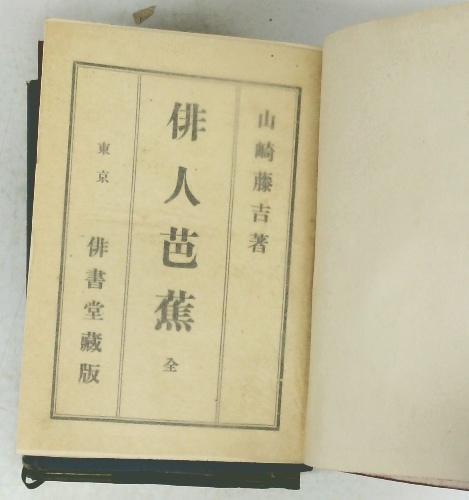 山崎藤吉著
俳人芭蕉 全
東京 俳書堂藏版